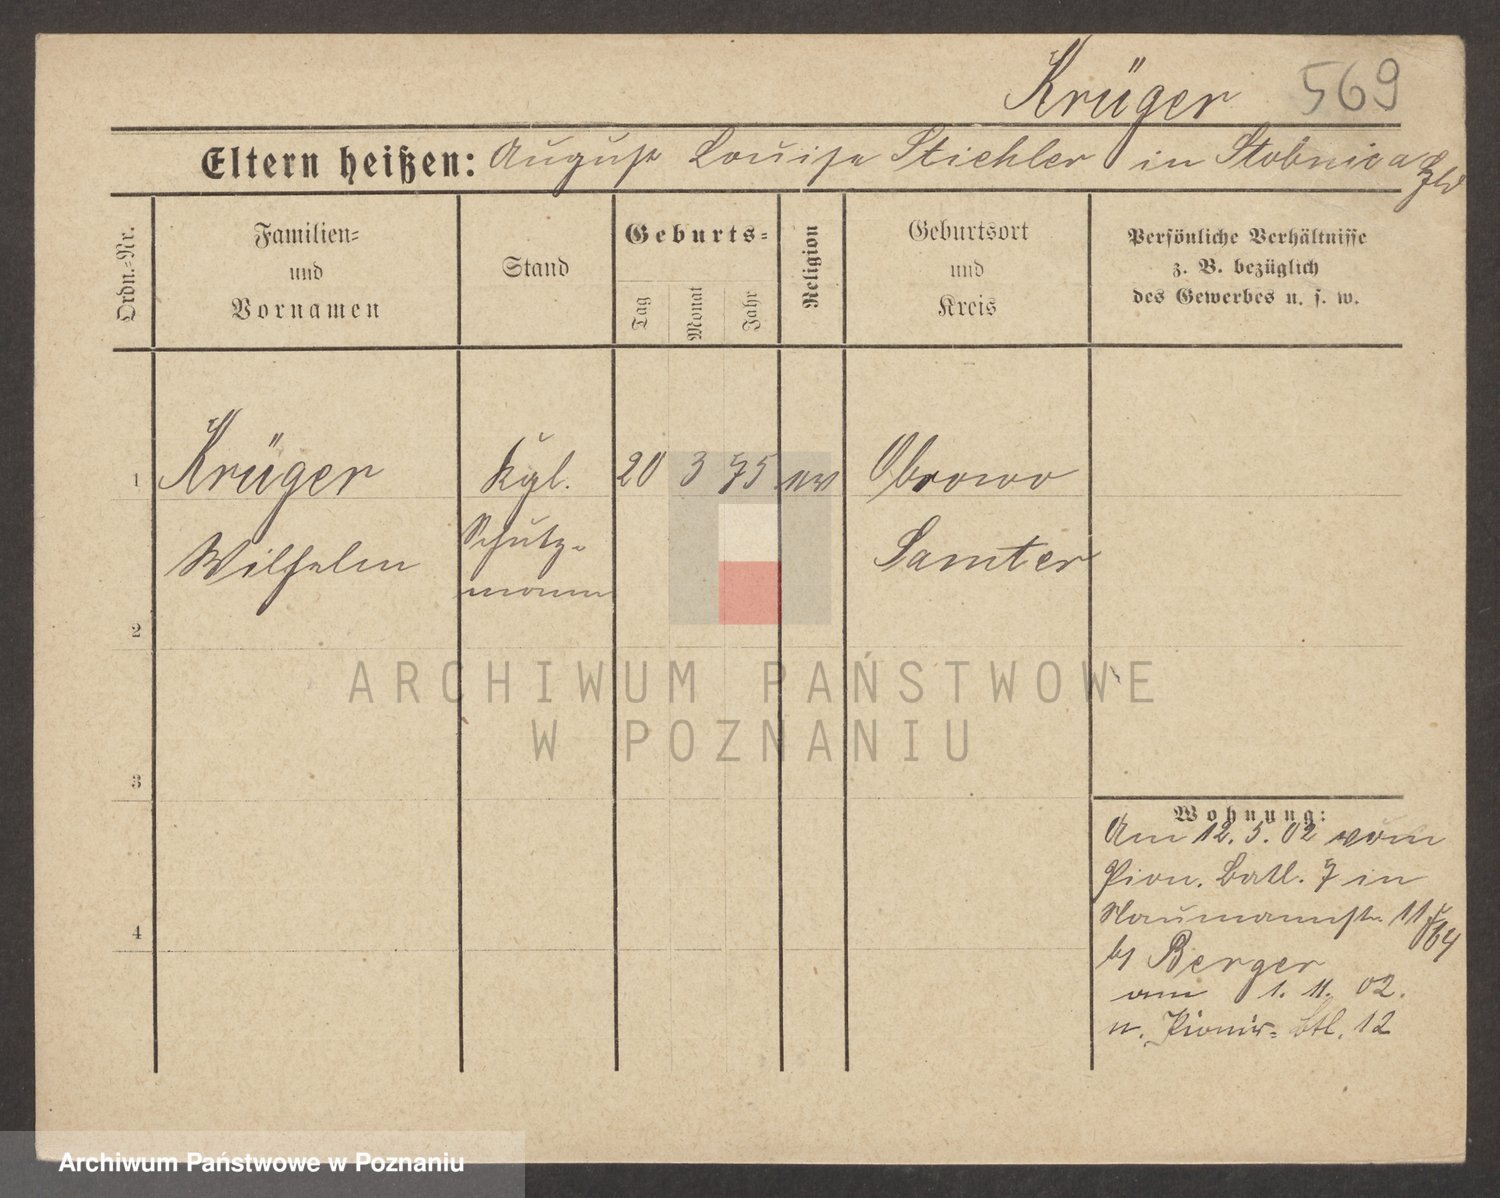 Krüger 569
Eltern heißen: August Louise Stichler in Stobnica
Ordn.-Nr.
Familien-
und
Vornamen
Stand
Geburts-
Tag
Monat
Jahr
Religion
Geburtsort
und
Kreis
Persönliche Verhältnisse
z. B. bezüglich
des Gewerbes u. s. w.
1 Krüger Kgl. 20 3 75 ev Obrowo
Wilhelm Schutz- Samter
mann
2
ARCHIWUM PAŃSTWOWE
W POZNANIU
3
Wohnung:
Am 12. 5. 02 vom
Pion. Batl. 7 in
Naumannstr. 11
bs Berger
am 1. 11. 02.
n. Pionir- btl. 12
4
Archiwum Państwowe w Poznaniu